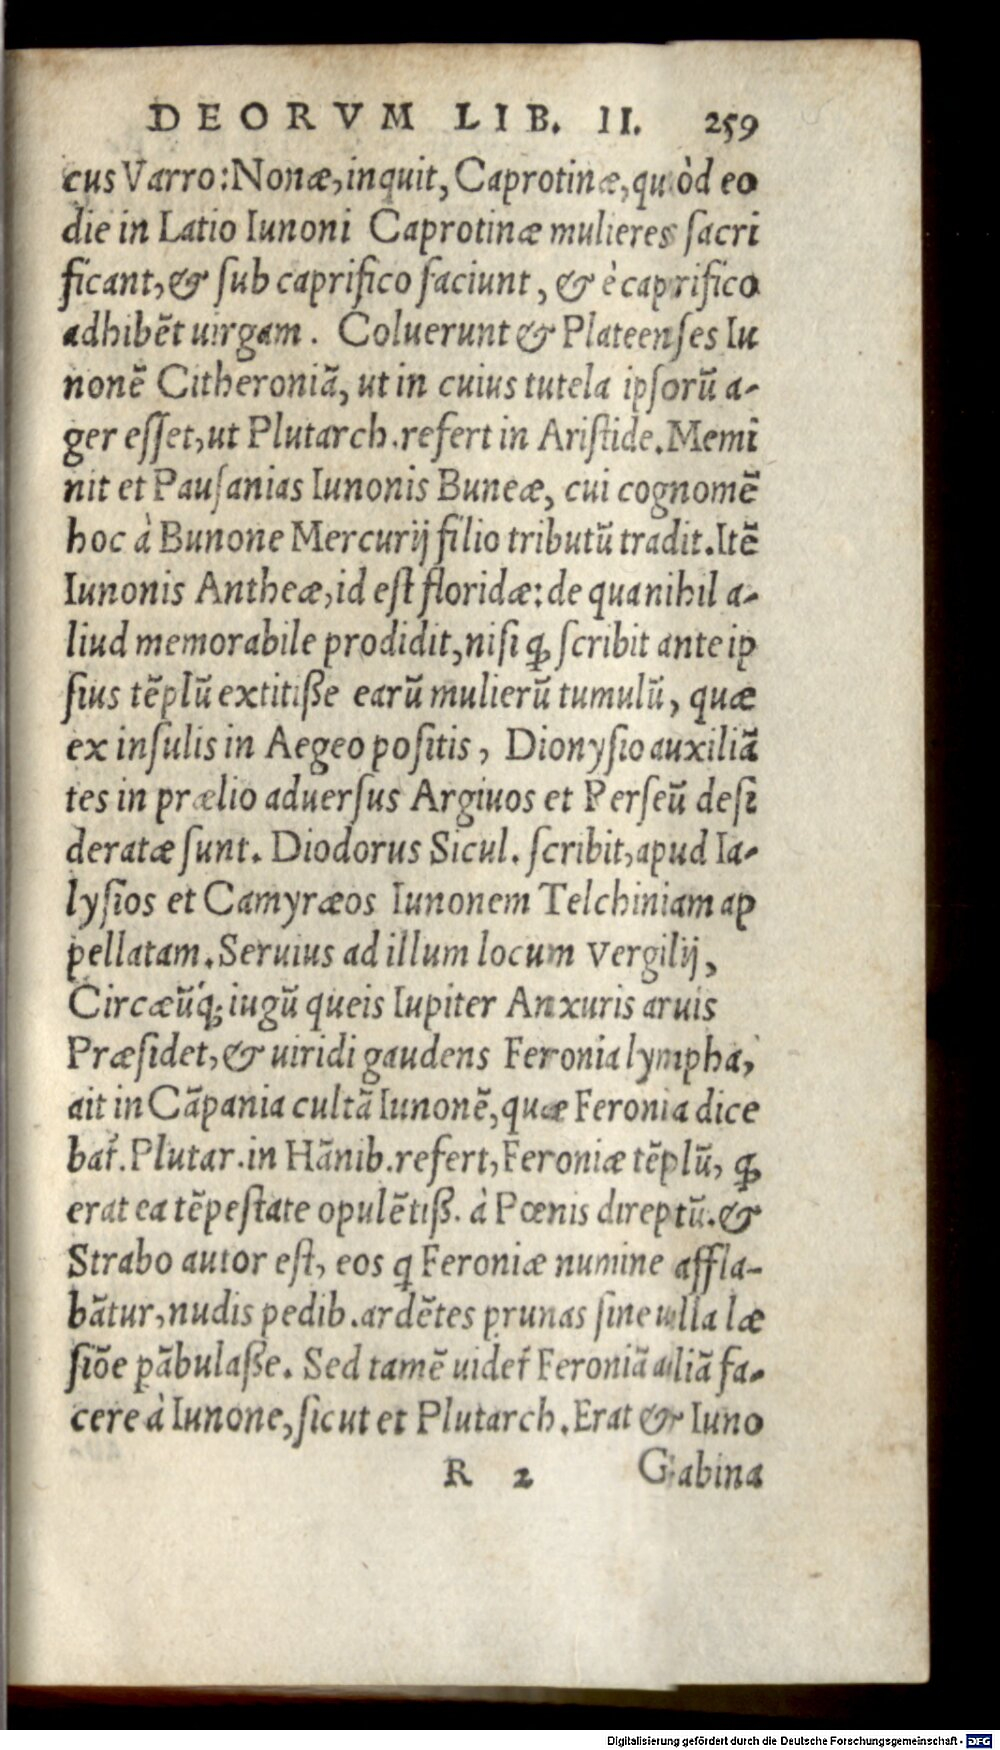 DEORVM LIB. II. 259
cus Varro: Nonæ, inquit, Caprotinæ, quòd eo
die in Latio Iunoni Caprotinæ mulieres sacri
ficant, & sub caprifico faciunt, & è caprifico
adhibēt uirgam. Coluerunt & Plateenses Iu
nonē Citheroniā, ut in cuius tutela ipsorū a-
ger esset, ut Plutarch. refert in Aristide. Memi
nit et Pausanias Iunonis Buneæ, cui cognomē
hoc à Bunone Mercurij filio tributū tradit. Itē
Iunonis Antheæ, id est floridæ: de qua nihil a-
liud memorabile prodidit, nisi ꝙ scribit ante ip
sius tēplū extitiße earū mulierū tumulū, quæ
ex insulis in Aegeo positis, Dionysio auxiliā
tes in prælio aduersus Argiuos et Perseū desi
deratæ sunt. Diodorus Sicul. scribit, apud Ia-
lysios et Camyræos Iunonem Telchiniam ap
pellatam. Seruius ad illum locum Vergilij,
Circæūq́; iugū queis Iupiter Anxuris aruis
Præsidet, & uiridi gaudens Feronia lympha,
ait in Cāpania cultā Iunonē, quæ Feronia dice
bat᷑. Plutar. in Hānib. refert, Feroniæ tēplū, ꝙ
erat ea tēpestate opulētiß. à Pœnis direptū. &
Strabo autor est, eos q̃ Feroniæ numine affla-
bātur, nudis pedib. ardētes prunas sine ulla læ
siōe ꝑābulaße. Sed tamē uidet᷑ Feroniā aliā fa-
cere à Iunone, sicut et Plutarch. Erat & Iuno
R 2 Gabina
Digitalisierung gefördert durch die Deutsche Forschungsgemeinschaft - DFG